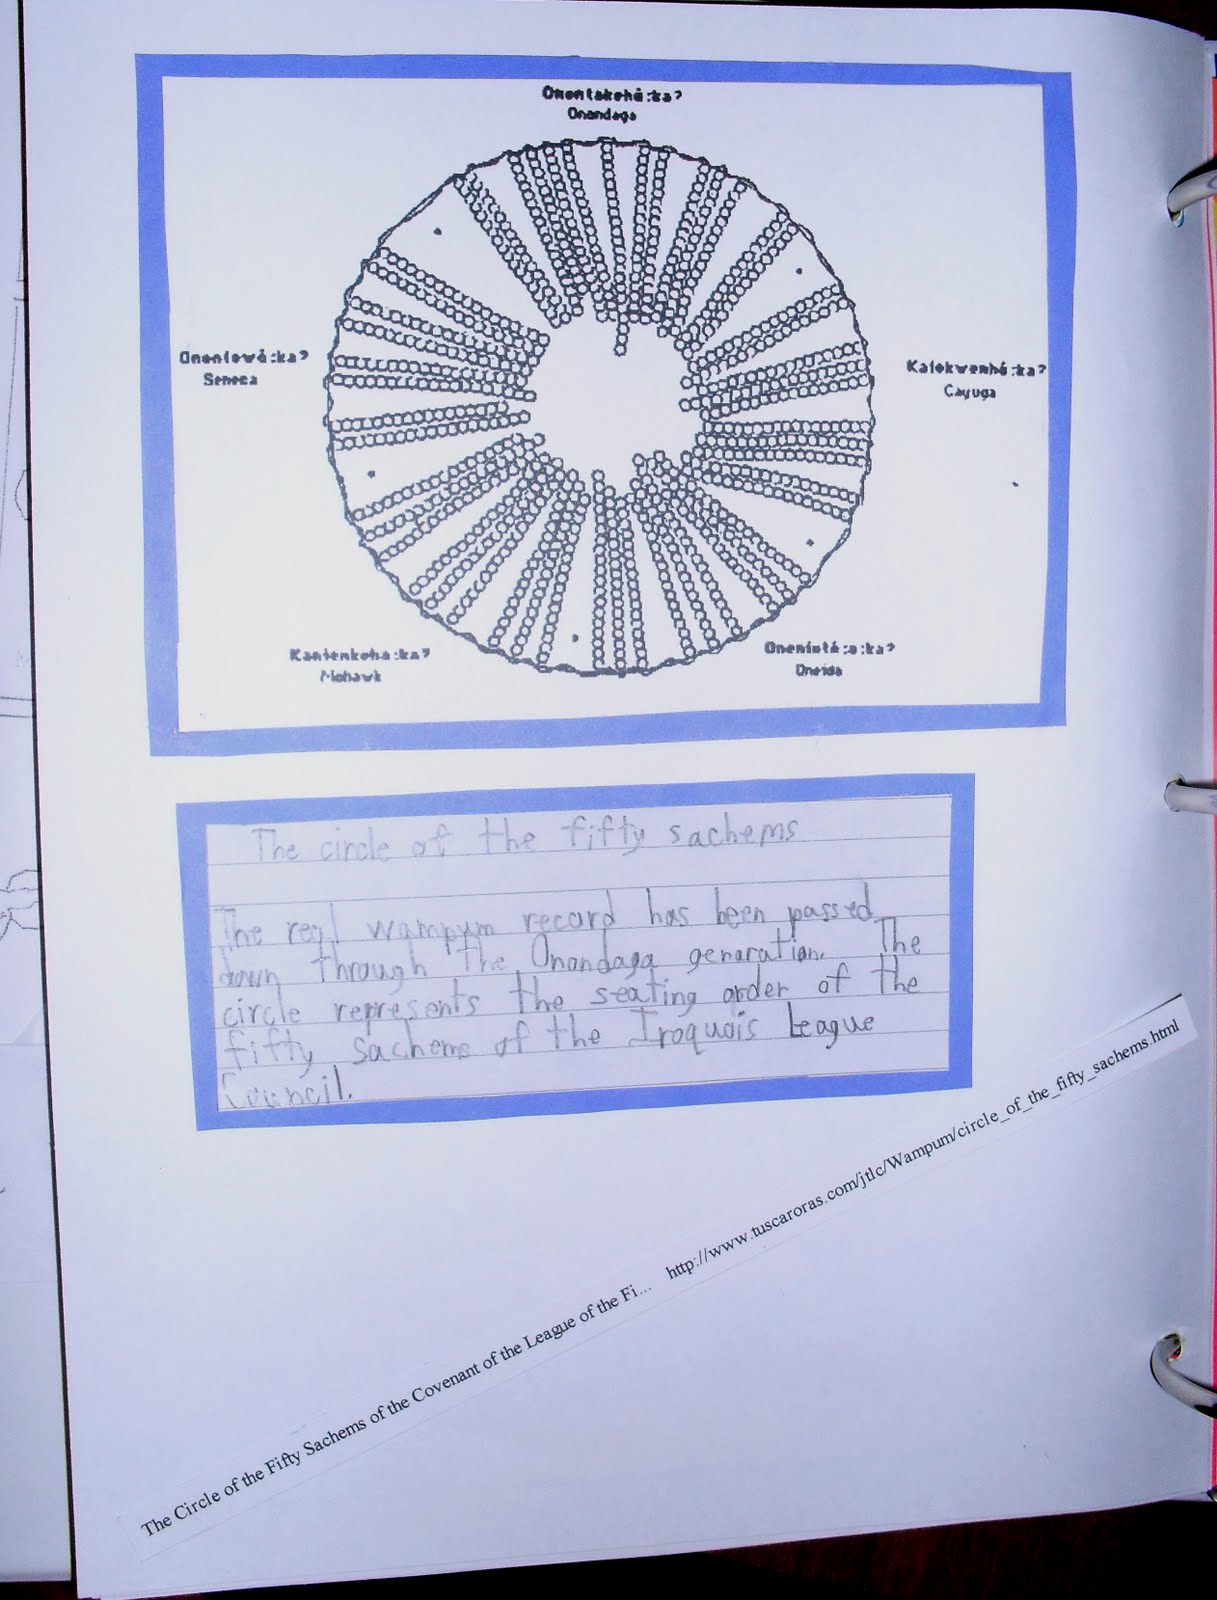 Onondaga
Seneca
Cayuga
Mohawk
Oneida
The circle of the fifty sachems
The real wampum record has been passed
down through the Onondaga genaration. The
circle represents the seating order of the
fifty sachems of the Iroquois League
Council.
The Circle of the Fifty Sachems of the Covenant of the League of the Fi... http://www.tuscaroras.com/jtlc/Wampum/circle_of_the_fifty_sachems.html